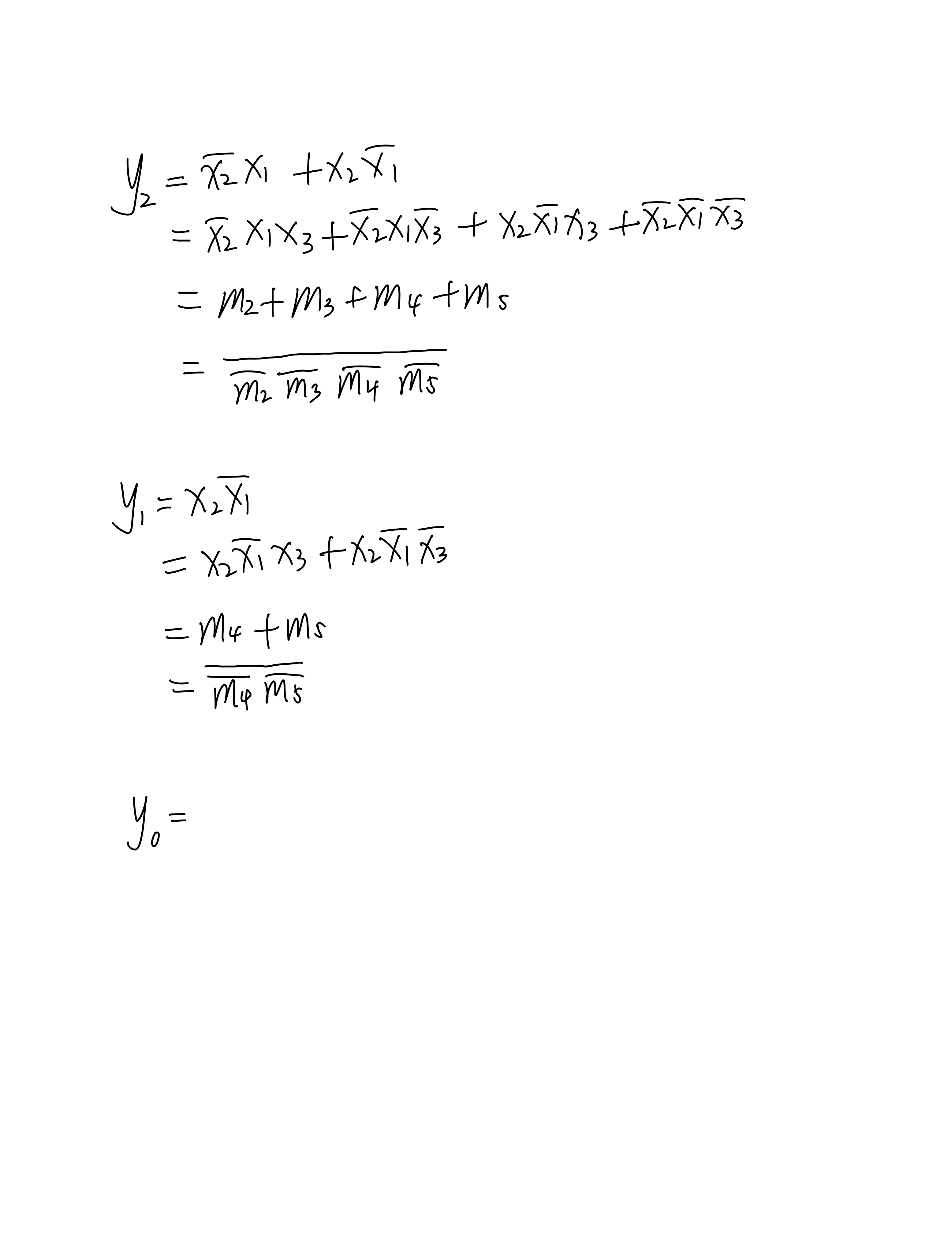 y₂ = x̅₂ x₁ + x₂ x̅₁
= x̅₂ x₁ x₃ + x̅₂ x₁ x̅₃ + x₂ x̅₁ x₃ + x̅₂ x̅₁ x̅₃
= m₂ + m₃ + m₄ + m₅
= \overline{\overline{m₂} \overline{m₃} \overline{m₄} \overline{m₅}}
y₁ = x₂ x̅₁
= x₂ x̅₁ x₃ + x₂ x̅₁ x̅₃
= m₄ + m₅
= \overline{\overline{m₄} \overline{m₅}}
y₀ =